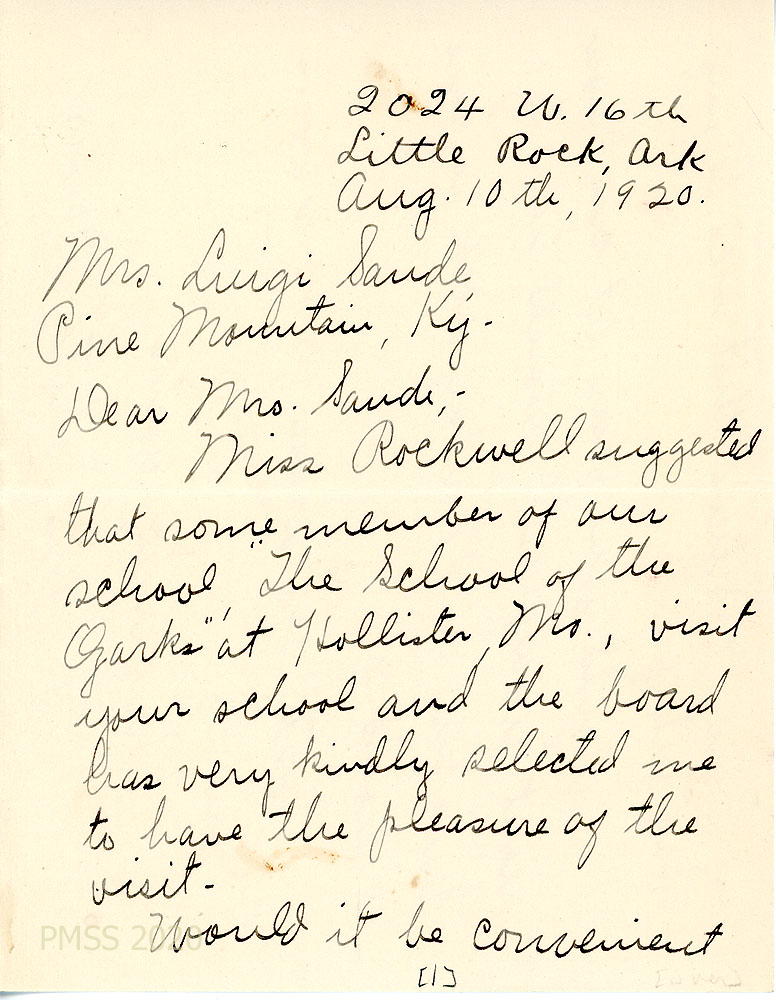 2024 W. 16th
Little Rock, Ark
Aug. 10th, 1920.
Mrs. Luigi Zande
Pine Mountain, Ky.
Dear Mrs. Zande,-
Miss Rockwell suggested
that some member of our
school, "The School of the
Ozarks" at Hollister, Mo., visit
your school and the board
has very kindly selected me
to have the pleasure of the
visit-
Would it be convenient
PMSS
[1]